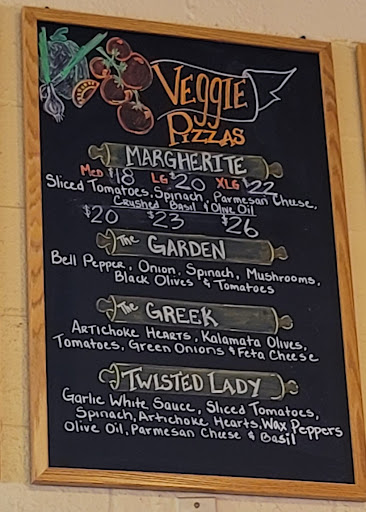 Veggie
Pizzas
Margherite
Med $18 LG $20 XLG $22
Sliced Tomatoes, Spinach, Parmesan Cheese,
Crushed Basil & Olive Oil
$20 $23 $26
The Garden
Bell Pepper, Onion, Spinach, Mushrooms,
Black Olives & Tomatoes
The Greek
Artichoke Hearts, Kalamata Olives,
Tomatoes, Green Onions & Feta Cheese
Twisted Lady
Garlic White Sauce, Sliced Tomatoes,
Spinach, Artichoke Hearts, Wax Peppers
Olive Oil, Parmesan Cheese & Basil